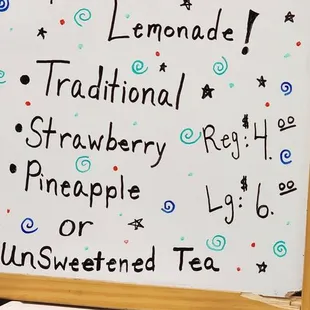 Lemonade!
• Traditional
• Strawberry Reg: $4.00
• Pineapple Lg: $6.00
or
UnSweetened Tea